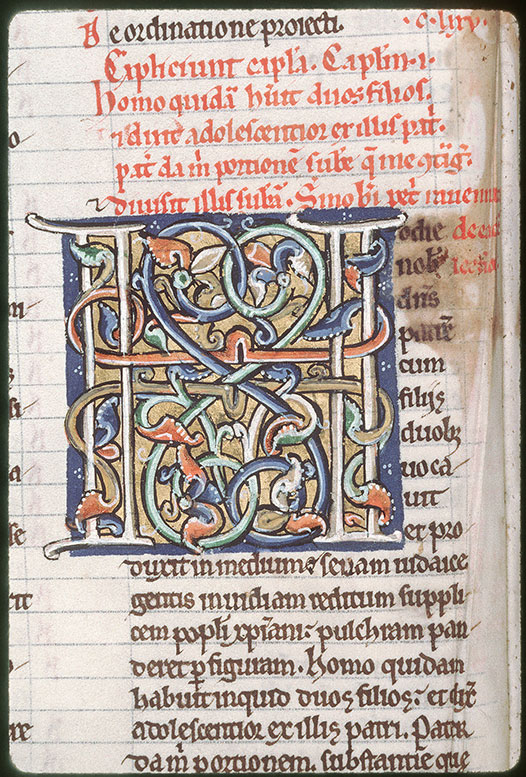 De ordinatione proiecti. .c. lxv.
Explictunt cap̄la. Caplm̄. i.
Homo quidā h̄uit duos filios.
⁊ dixit adolescentior ex illis pat̄.
pat̄ da m̄ portionē sub̄e q̄ me
diuisit illis subā.
Hodie
nob̄
dn̄s
patrē
cum
filijs
duobꝫ
uoca
uit
et pro
duxit in medium: seuam iudaice
gentis inuidiam reditum suppli
cem popl̄i xp̄iani: pulchram pan
deret ꝑ figuram. Homo quidam
habuit inquid duos filios: et dix̄
adolescentior ex illis patri. Pater
da m̄ portionem substantie que